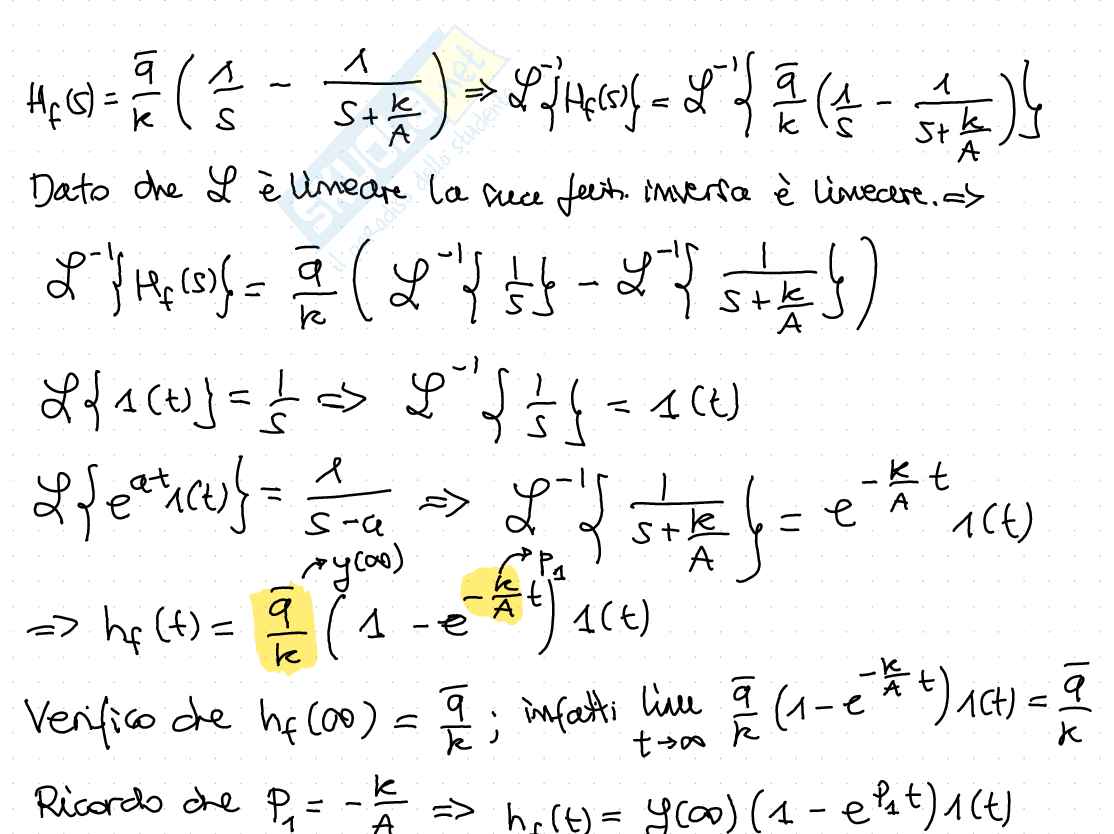 H_f(s) = q̅/k (1/s - 1/(s + k/A)) => ℒ⁻¹{H_f(s)} = ℒ⁻¹{q̅/k (1/s - 1/(s + k/A))}
Dato che ℒ è lineare la sua funz. inversa è lineare. =>
ℒ⁻¹{H_f(s)} = q̅/k (ℒ⁻¹{1/s} - ℒ⁻¹{1/(s + k/A)})
ℒ{1(t)} = 1/s => ℒ⁻¹{1/s} = 1(t)
ℒ{e^{at} 1(t)} = 1/(s - a) => ℒ⁻¹{1/(s + k/A)} = e^{-k/A t} 1(t)
→ y(∞) → P₁
=> h_f(t) = q̅/k (1 - e^{-k/A t}) 1(t)
Verifico che h_f(∞) = q̅/k ; infatti lim t→∞ q̅/k (1 - e^{-k/A t}) 1(t) = q̅/k
Ricordo che P₁ = -k/A => h_f(t) = y(∞) (1 - e^{P₁ t}) 1(t)